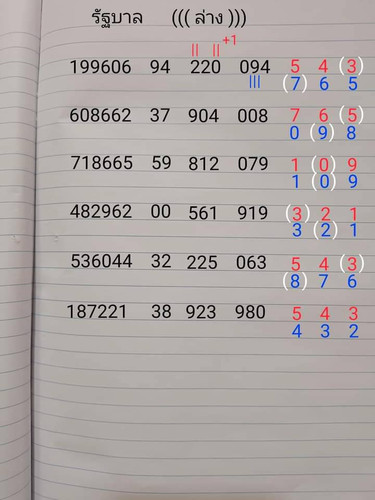 รัฐบาล ((( ล่าง )))
|| || +1
199606 94 220 094 5 4 (3)
||| (7) 6 5
608662 37 904 008 7 6 (5)
0 (9) 8
718665 59 812 079 1 (0) 9
1 (0) 9
482962 00 561 919 (3) 2 1
3 (2) 1
536044 32 225 063 5 4 (3)
(8) 7 6
187221 38 923 980 5 4 3
4 3 2